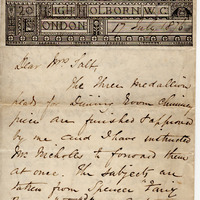 20 HIGH HOLBORN. W. C.
LONDON
Dear Mrs Salt,
The three medallion
heads for Dining Room Chimney
piece are finished & approved
by me and I have instructed
Mr Nicholls to forward them
at once. The subjects are
taken from Spencer's Fairy